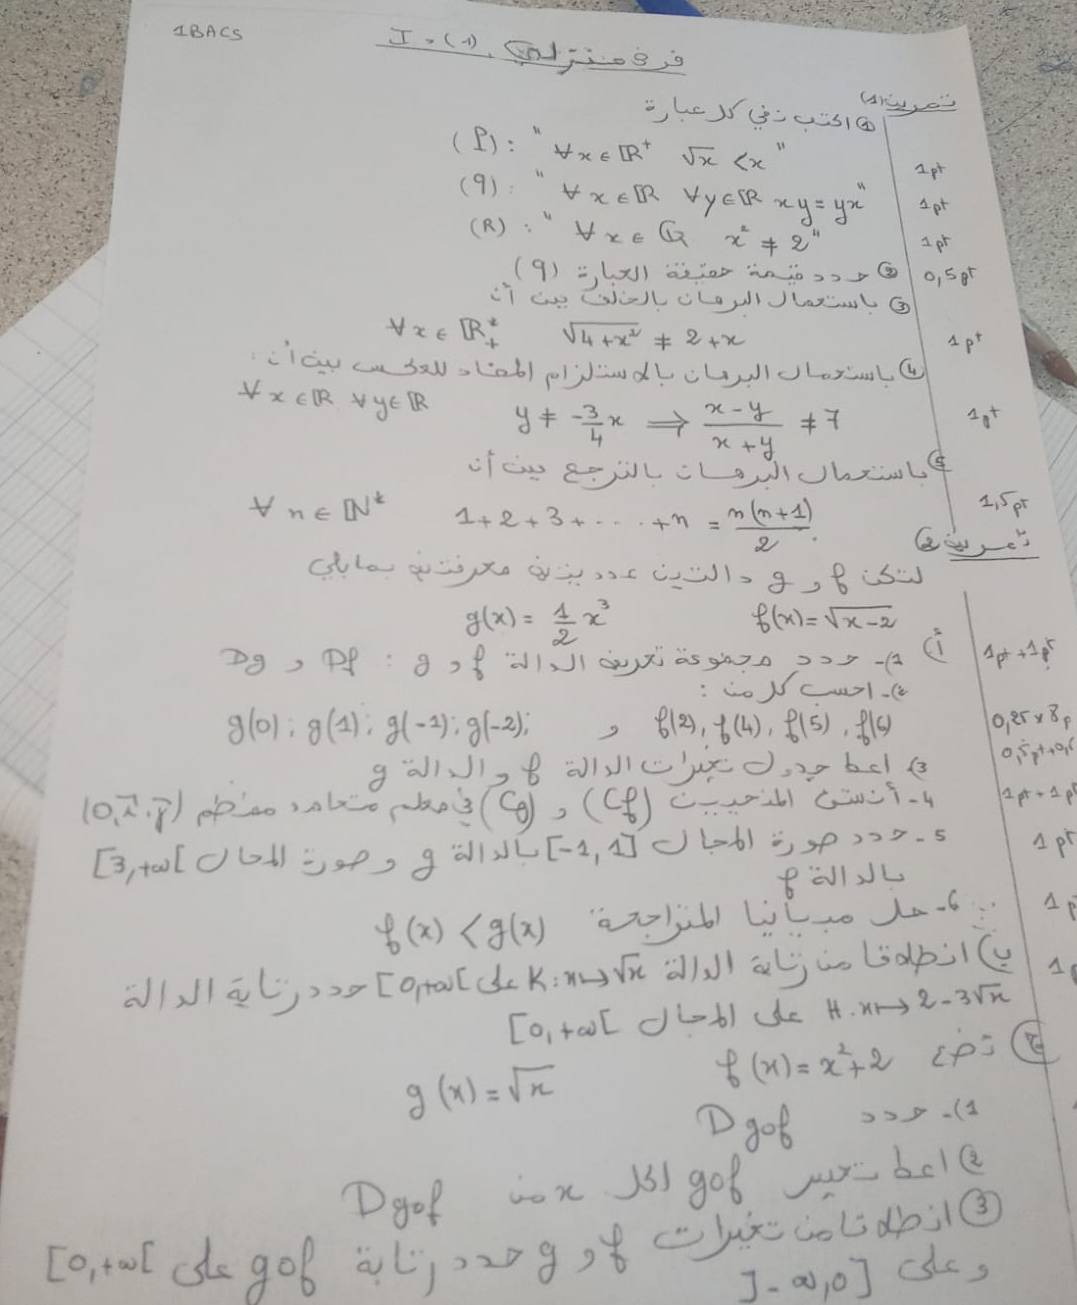 1BACS
فرض منزلي (1). I
تمرين (1)
① اكتب نفي كل عبارة
(P): " ∀x∈ℝ⁺ √x < x " 1pt
(q): " ∀x∈ℝ ∀y∈ℝ xy = yx " 1pt
(R): " ∀x∈ℚ x² ≠ 2 " 1pt
② حدد قيمة حقيقة العبارة (q) 0,5pt
③ باستعمال البرهان بالخلف بين أن
∀x∈ℝ*₊ √(4+x²) ≠ 2+x 1pt
④ باستعمال البرهان بالاستلزام المضاد للعكس بين أن:
∀x∈ℝ ∀y∈ℝ y ≠ -3/4 x ⟹ (x-y)/(x+y) ≠ 7 1pt
⑤ باستعمال البرهان بالترجع بين أن
∀n∈ℕ* 1+2+3+....+n = n(n+1)/2. 1,5pt
تمرين ②
لتكن f و g دالتين عدديتين معرفتين بمايلي
g(x) = 1/2 x³ f(x) = √(x-2)
أ) 1)- حدد مجموعة تعريف الدالة f و g : Df و Dg 1pt+1pt
2)- احسب كل من :
g(0); g(1); g(-1); g(-2); و f(2), f(4), f(5), f(6) 0,25x8p
3) اعط جدول تغيرات الدالة f والدالة g
4- أنشئ المنحيين (Cf) و (Cg) في معلم متعامد ممنظم (0,i⃗,j⃗) 1pt+1pt
5- حدد صورة المجال [-1,1] بالدالة g وصورة المجال [3,+∞[ 1pt
بالدالة f
6- حل مبيانيا المتراجحة f(x) < g(x)
ب) انطلاقا من رتابة الدالة K: x↦√x على [0,+∞[ حدد رتابة الدالة
H: x↦ 2-3√x على المجال [0,+∞[
نضع f(x) = x²+2 g(x) = √x
1)- حدد Dgof
② اعط تعبير gof لكل x من Dgof
③ انطلاقا من تغيرات f و g حدد رتابة gof على [0,+∞[
وعلى ]-∞,0]